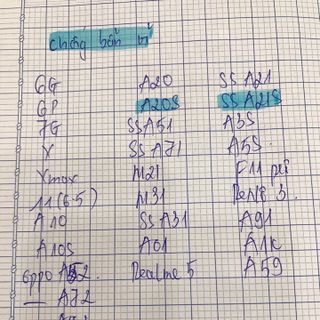 Chống bản vỡ
6G A20 SS A21
6P A20S SS A21S
7G SS A51 A3S
X SS A71 A5S
Xmax M21 F11 pro
11 (6.5) M31 Reno 3
A10 SS A31 A91
A10S A01 A1K
oppo A52 Realme 5 A59
A72